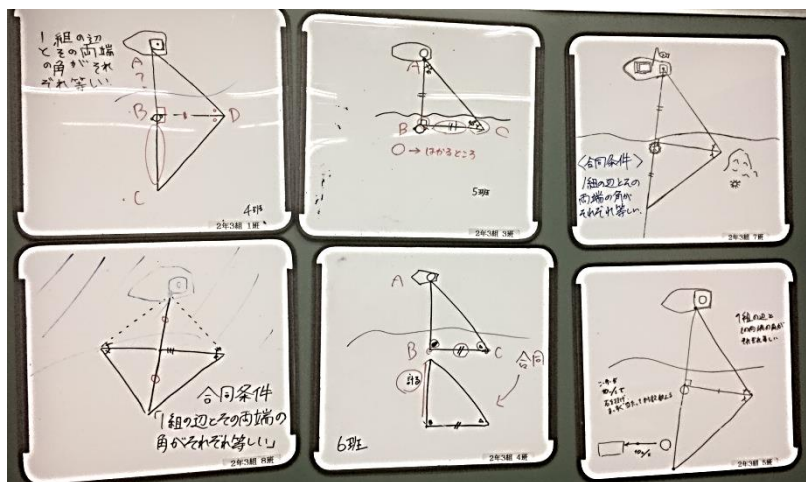 1組の辺
とその両端
の角がそれ
ぞれ等しい
A
?
B
D
C
4班
2年3組 1班
A
B
C
○→はかるところ
5班
2年3組 3班
〈合同条件〉
1組の辺とその
両端の角が
それぞれ等しい.
2年3組 7班
合同条件
「1組の辺とその両端の
角がそれぞれ等しい」
2年3組 8班
A
B
C
合同
6班
2年3組 4班
1組の辺と
2年3組 5班